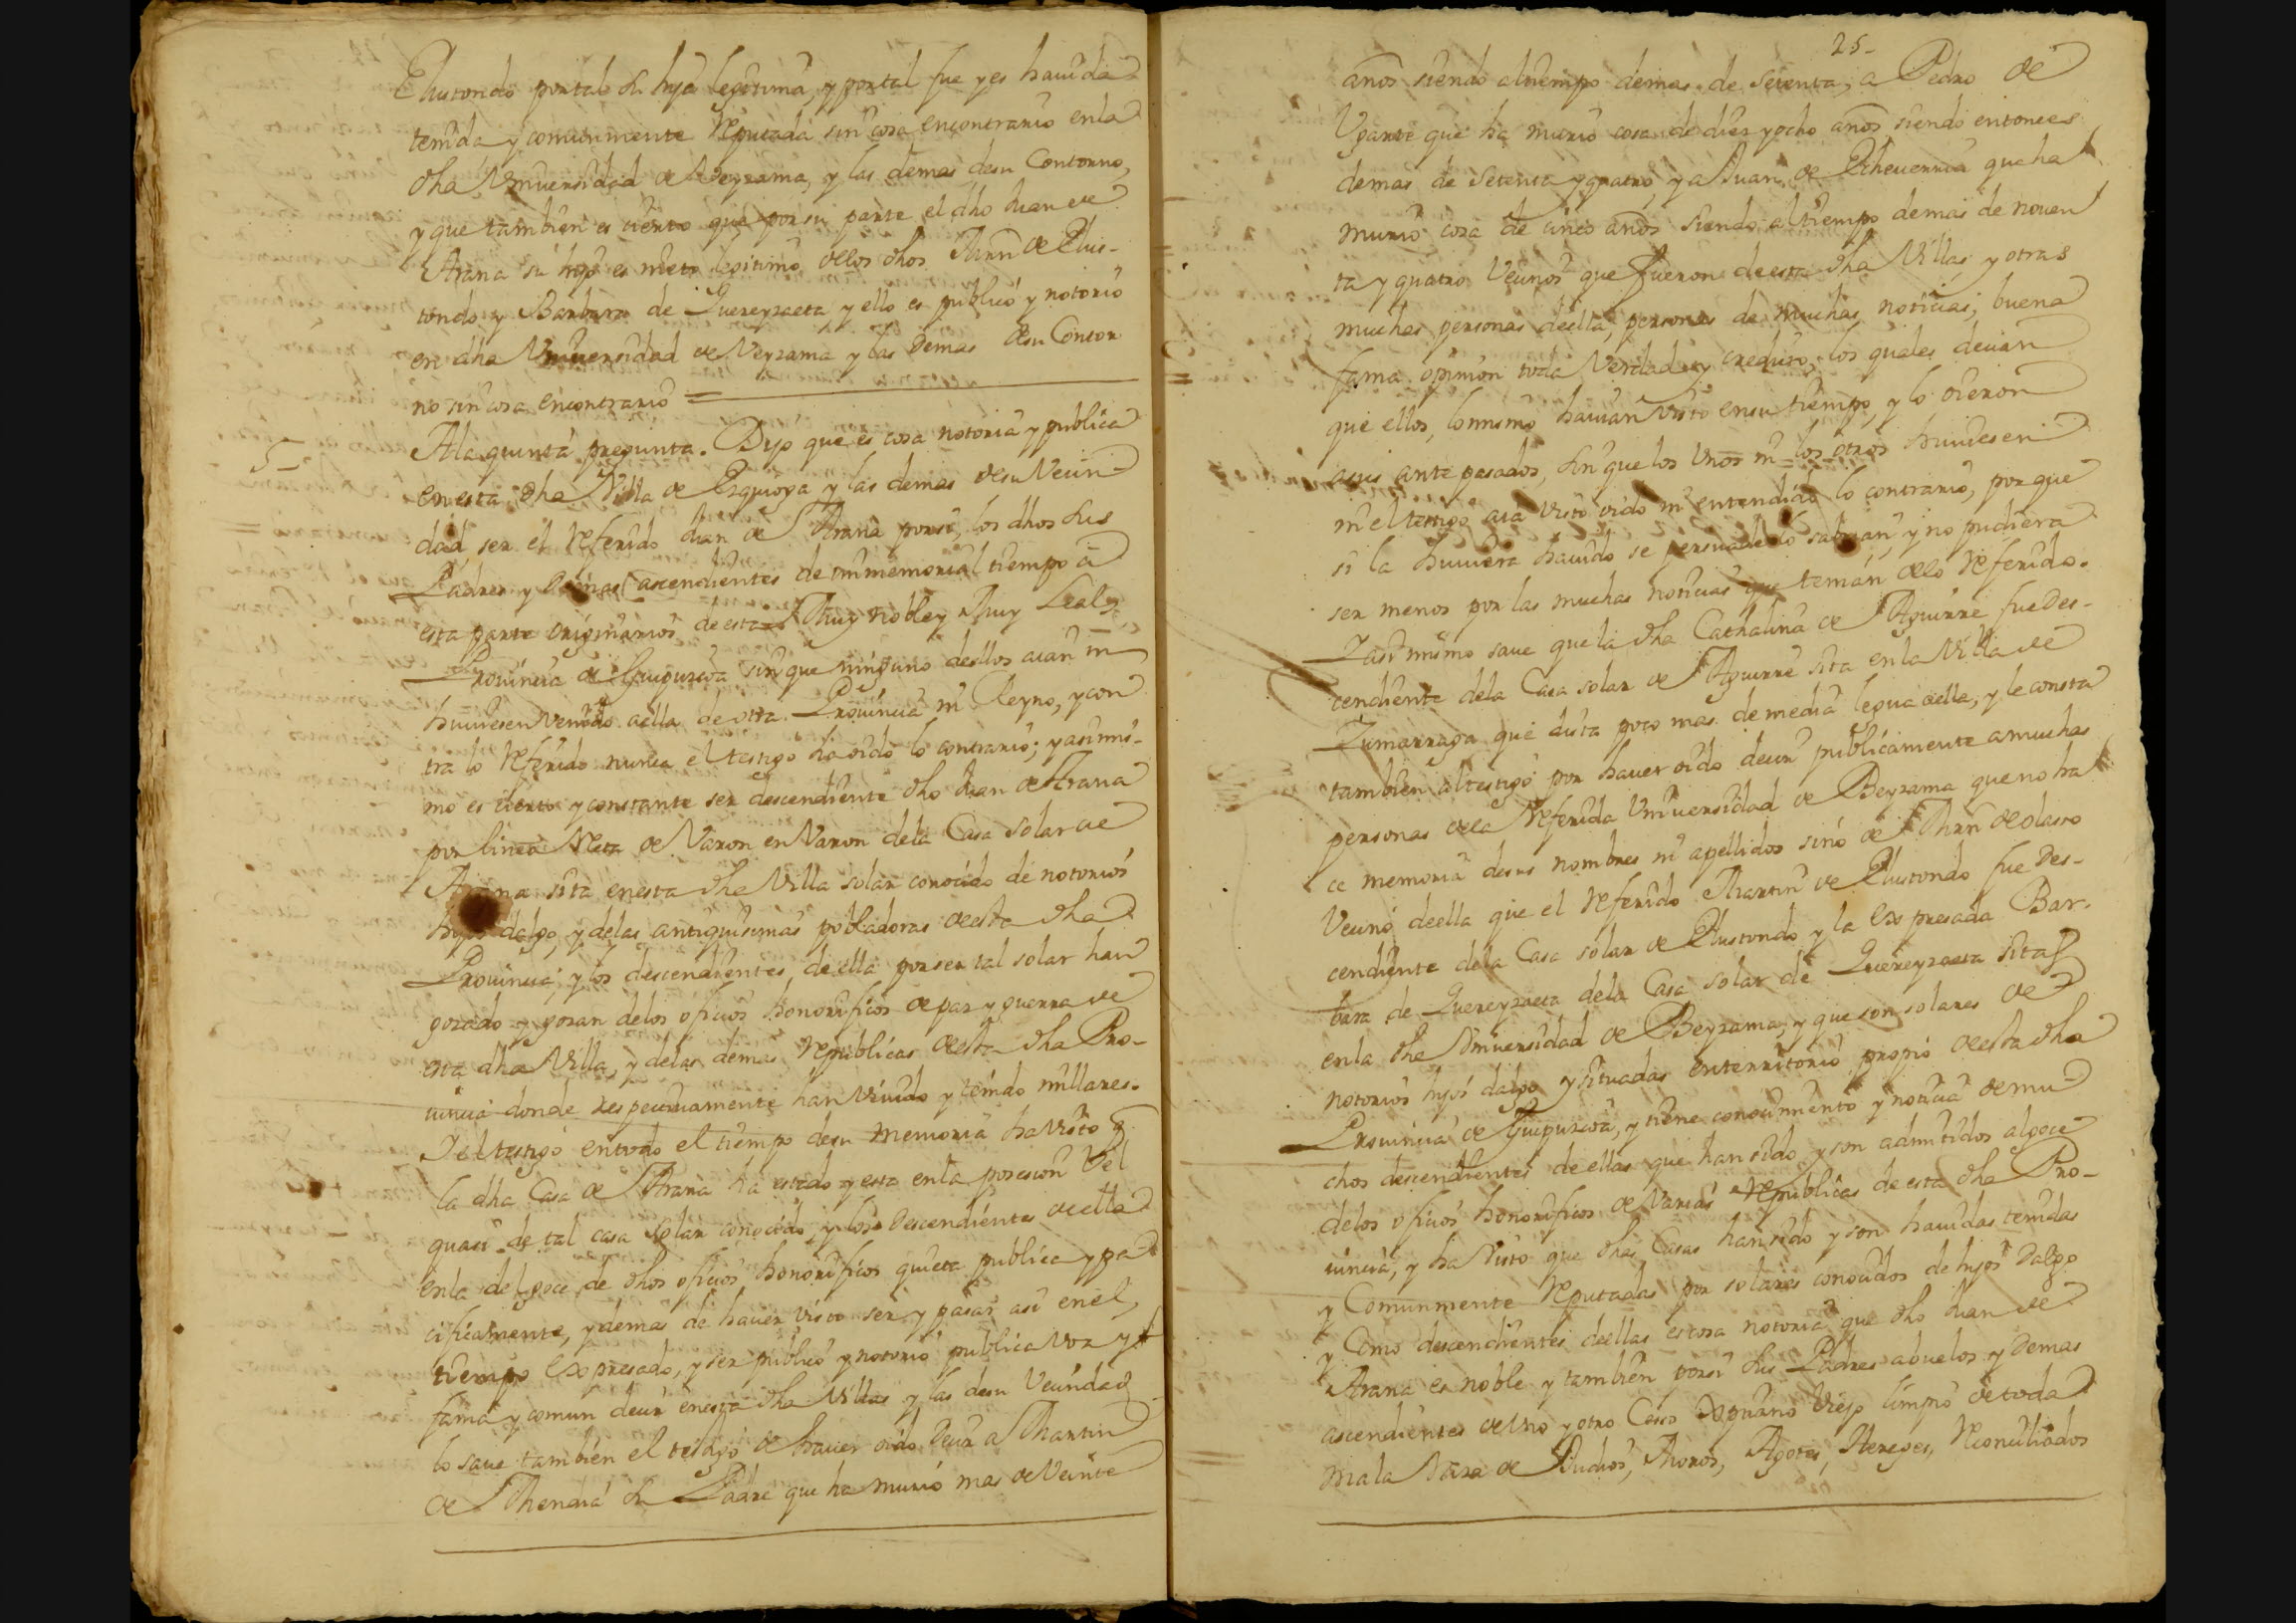 Elustondo por tal su hija legitima, y por tal fue y es hauida
tenida y comunmente Reputada sin cosa encontrario en la
dha Vniuersidad de Beyzama, y las demas de su Contorno,
y que tambien es cierto que por su parte el dho Juan de
Arana su hijo es nieto legitimo de los dhos Marn de Elus-
tondo y Barbara de Quereyzaeta y ello es publico y notorio
en dha Vniuersidad de Veyzama y las demas de su Contor
no sin cosa encontrario =
5 - A la quinta pregunta. Dijo que es cosa notoria y publica
en esta dha Villa de Ezquioga y las demas de su Vecin
dad, ser el Referido Juan de Arana por si, los dhos sus
Padres y demas ascendientes de inmemorial tiempo a
esta parte originarios de esta Muy noble y Muy Leal
Prouincia de Guipuzcoa sin que ninguno de ellos aian ni
huuiesen Venido a ella de otra Prouincia ni Reyno, y con
tra lo Referido nunca el testigo ha oido lo contrario; y asimis-
mo es cierto y constante ser descendiente dho Juan de Arana
por linea Recta de Varon en Varon de la Casa solar de
Arana sita en esta dha Villa solar conocido de notorios
hijos dalgo, y de las antiquisimas pobladoras de esta dha
Prouincia; y los descendientes de ella por ser tal solar han
gozado y gozan de los oficios honorificos de paz y guerra de
esta dha Villa, y de las demas Republicas de esta dha Pro-
uincia donde respectiuamente han Viuido y tenido millares.
Y el testigo en todo el tiempo de su memoria ha Visto q
la dha Casa de Arana ha estado y esta en la posesion Vel
quasi de tal casa solar conocido, y los descendientes de ella
en la del goce de dhos oficios honorificos quieta publica y pa
cificamente, y demas de hauer visto ser y pasar asi en el
tiempo expresado, y ser publico y notorio publica voz y
fama y comun decir en esta dha Villa y las de su Vecindad
lo saue tambien el testigo de hauer oido decir a Martin
de Mendia su Padre que ha murio mas de Veinte
25-
años siendo al tiempo demas de setenta, a Pedro de
Vgarte que ha murio cosa de diez y ocho años siendo entonces
demas de setenta y quatro, y a Juan de Echeuerria que ha
murio cosa de cinco años siendo al tiempo demas de nouen
ta y quatro Vecinos que fueron de esta dha Villa y otras
muchas personas de ella, personas de muchas noticias, buena
fama opinion toda Verdad y credito, los quales decian
que ellos, lo mismo hauian visto en su tiempo, y lo oieron
a sus ante pasados, sin que los Vnos ni los otros huuiesen
ni el testigo aia Visto oido ni entendido lo contrario, por que
si la huuiera hauido se persuade lo sabrian, y no pudiera
ser menos por las muchas noticias que tenian de lo Referido.
Y asi mismo saue que la dha Cathalina de Aguirre fue des-
cendiente de la Casa solar de Aguirre sita en la Villa de
Zumarraga que dista poco mas de media legua de ella, y le consta
tambien al testigo por hauer oido decir publicamente a muchas
personas de la Referida Vniuersidad de Beyzama que no ha
ce memoria de sus nombres ni apellidos sino de Marn de olaso
Vecino de ella que el Referido Martin de Elustondo fue des-
cendiente de la Casa solar de Elustondo y la expresada Bar-
bara de Quereyzaeta de la Casa solar de Quereyzaeta sitas
en la dha Vniuersidad de Beyzama, y que son solares de
notorios hijos dalgo y situadas en territorio propio de esta dha
Prouincia de Guipuzcoa, y tiene conocimiento y noticia de mu
chos descendientes de ellas que han sido y son admitidos al goce
de los oficios honorificos de Varias Republicas de esta dha Pro-
uincia, y ha Visto que dhas Casas han sido y son hauidas tenidas
y Comunmente Reputadas por solares conocidos de hijos dalgo
y Como descendientes de ellas es cosa notoria que dho Juan de
Arana es noble y tambien por si sus Padres abuelos y demas
ascendientes de Vno y otro Casso Xpriano Viejo limpio de toda
mala Raza de Judios, Moros, Agotes, Hereges, Reconciliados